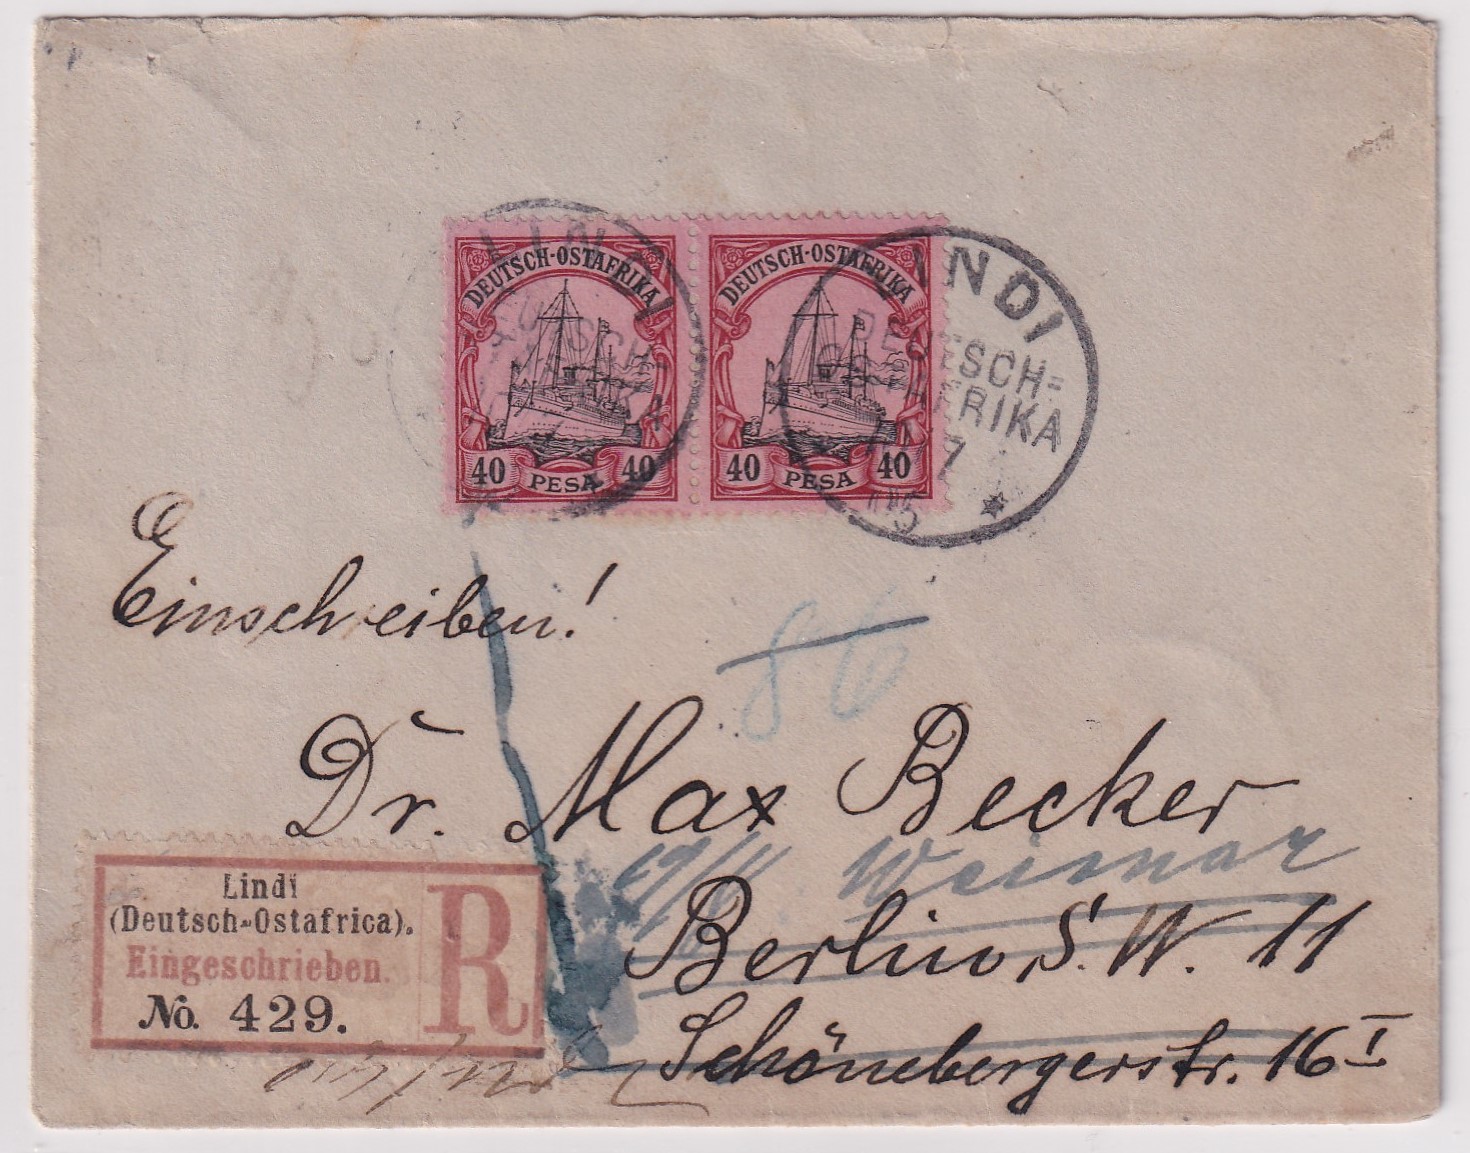 DEUTSCH-OSTAFRIKA
40 PESA 40
DEUTSCH-OSTAFRIKA
40 PESA 40
LINDI
DEUTSCH=
OSTAFRIKA
7
05
Einschreiben!
86
Dr. Max Becker
Weimar
Berlin, S.W. 11
Schönebergerstr. 16 I
Lindi
(Deutsch-Ostafrica).
Eingeschrieben.
No. 429.
R